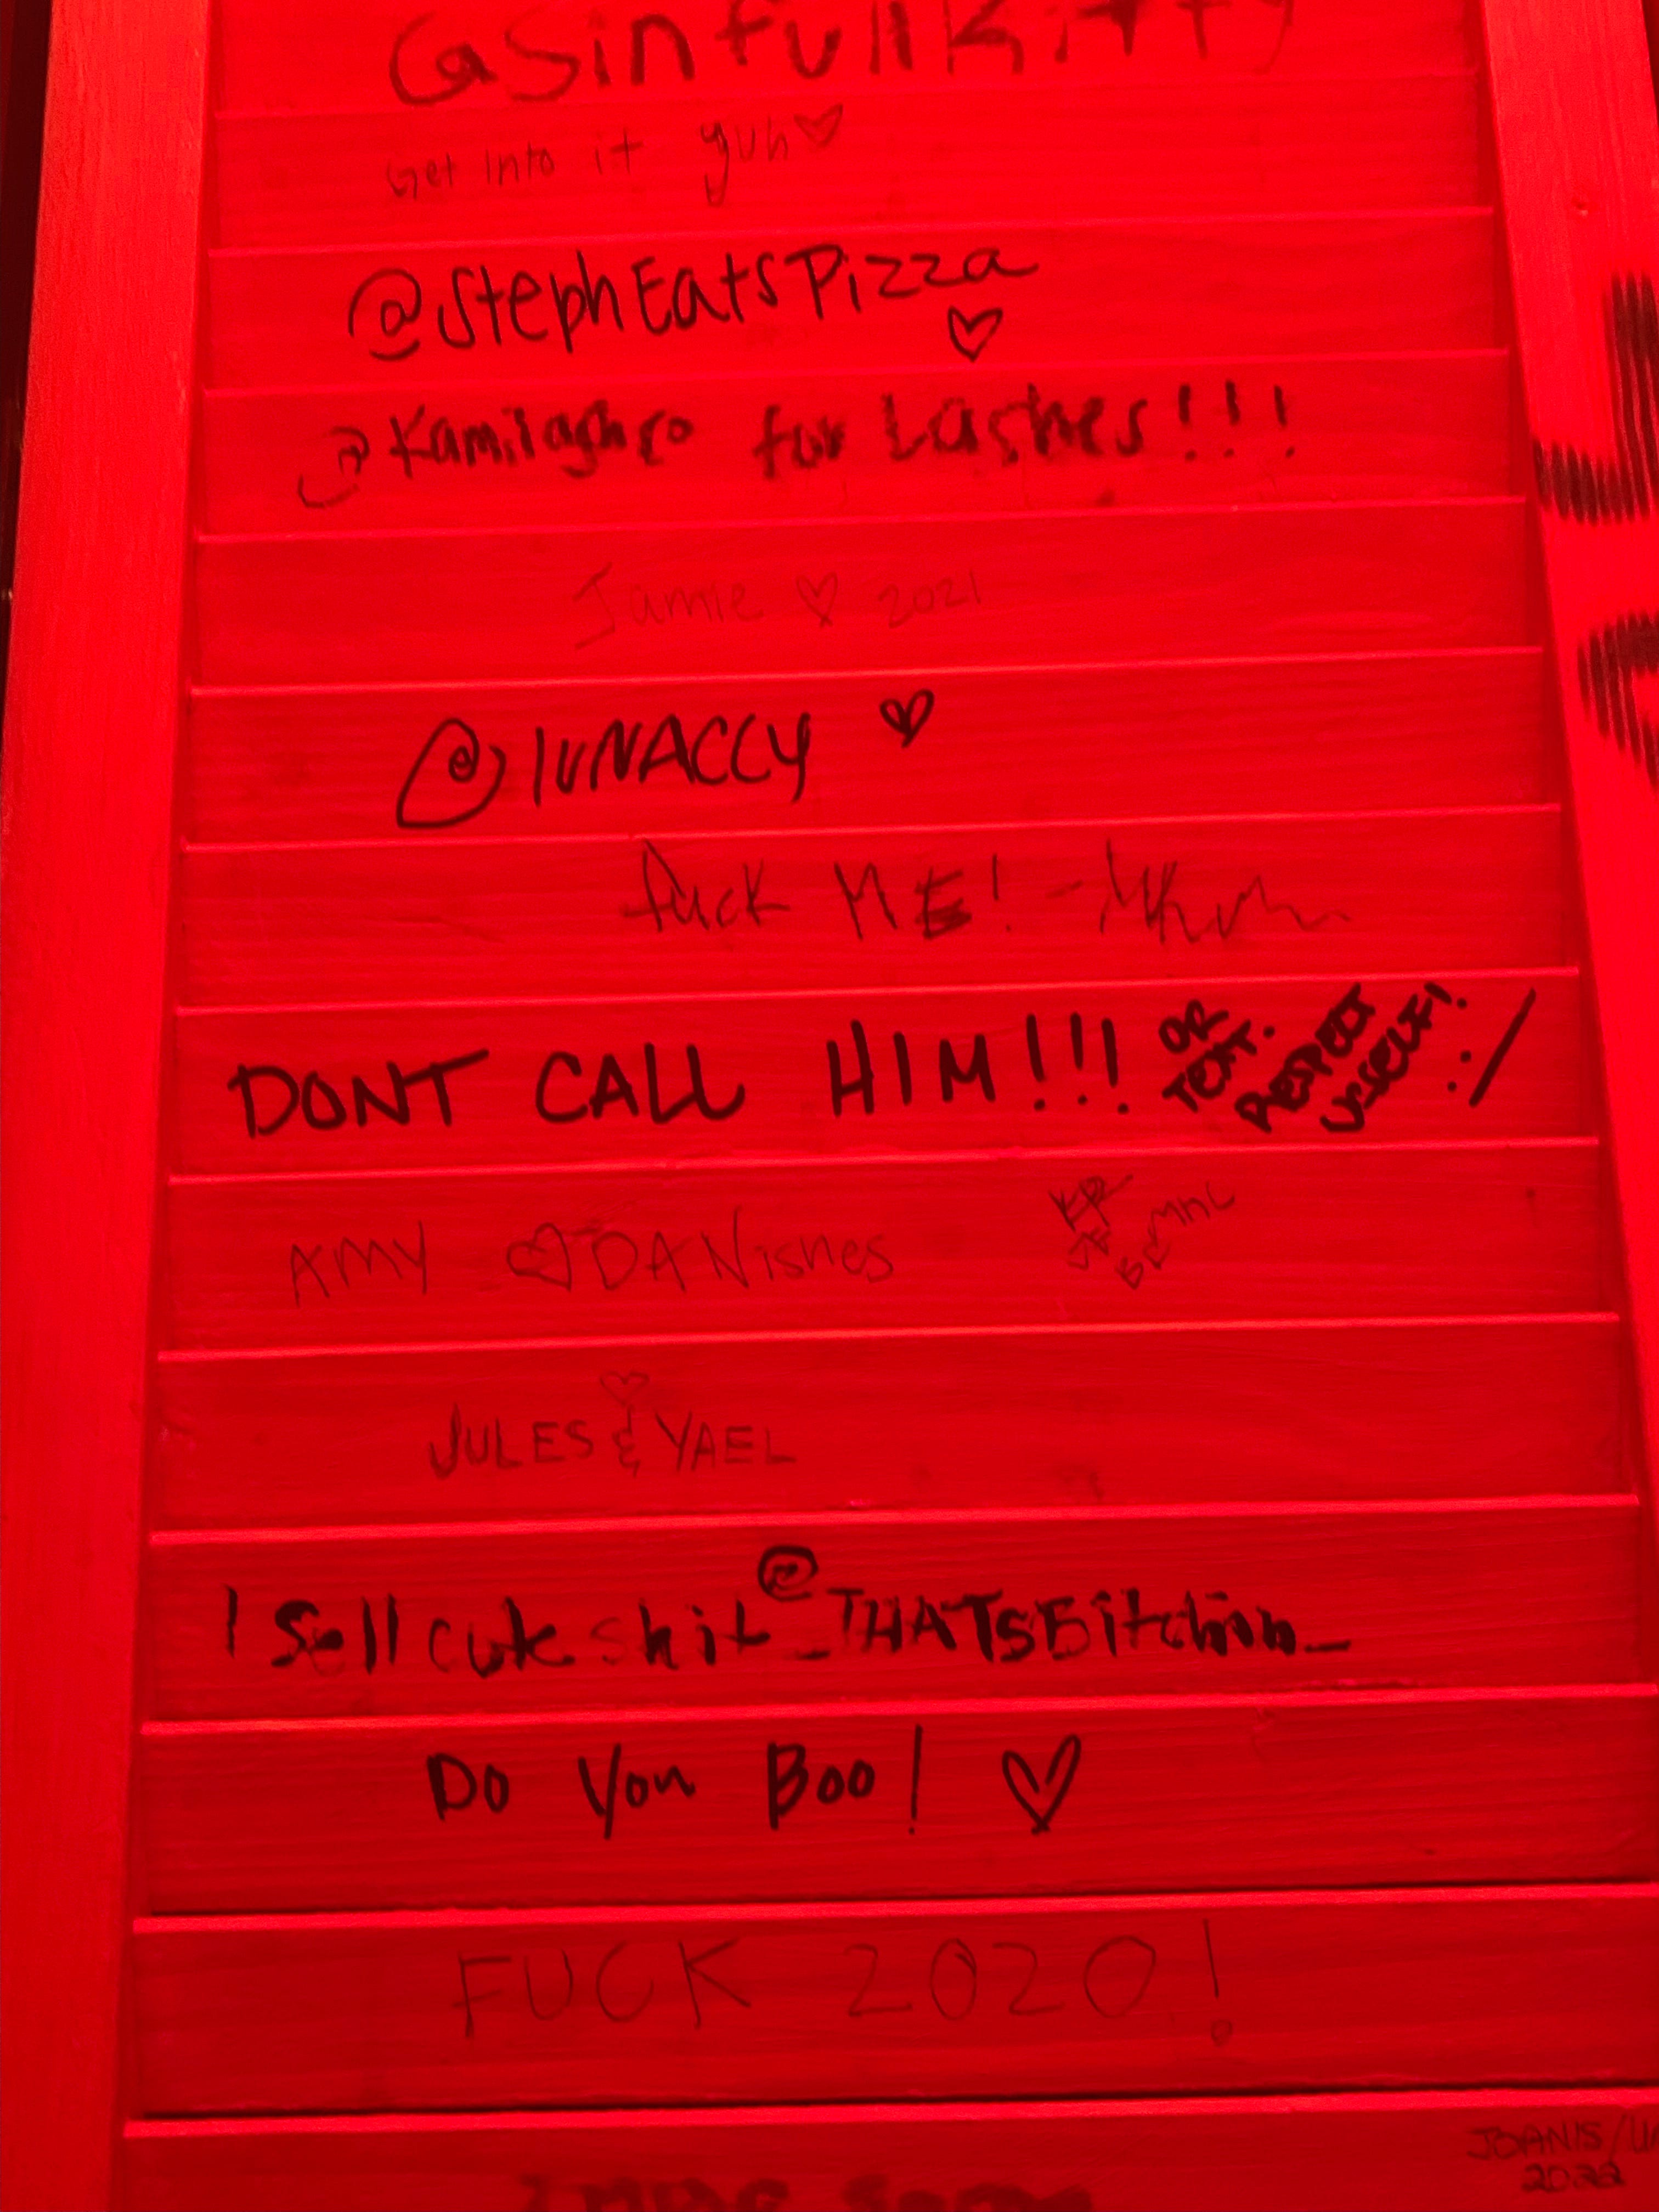 @SinfullKitty
Get into it yuh♡
@StephEatsPizza
♡
for Lashes!!!
Jamie ♡ 2021
@lunaccy ♡
fuck ME!
DONT CALL HIM!!! OR TEXT. RESPECT URSELF! :/
AMY ♡ DANishes
JULES & YAEL
I Sell cute shit @_THATSBitchin_
Do You Boo! ♡
FUCK 2020!
JOANIS/
2022